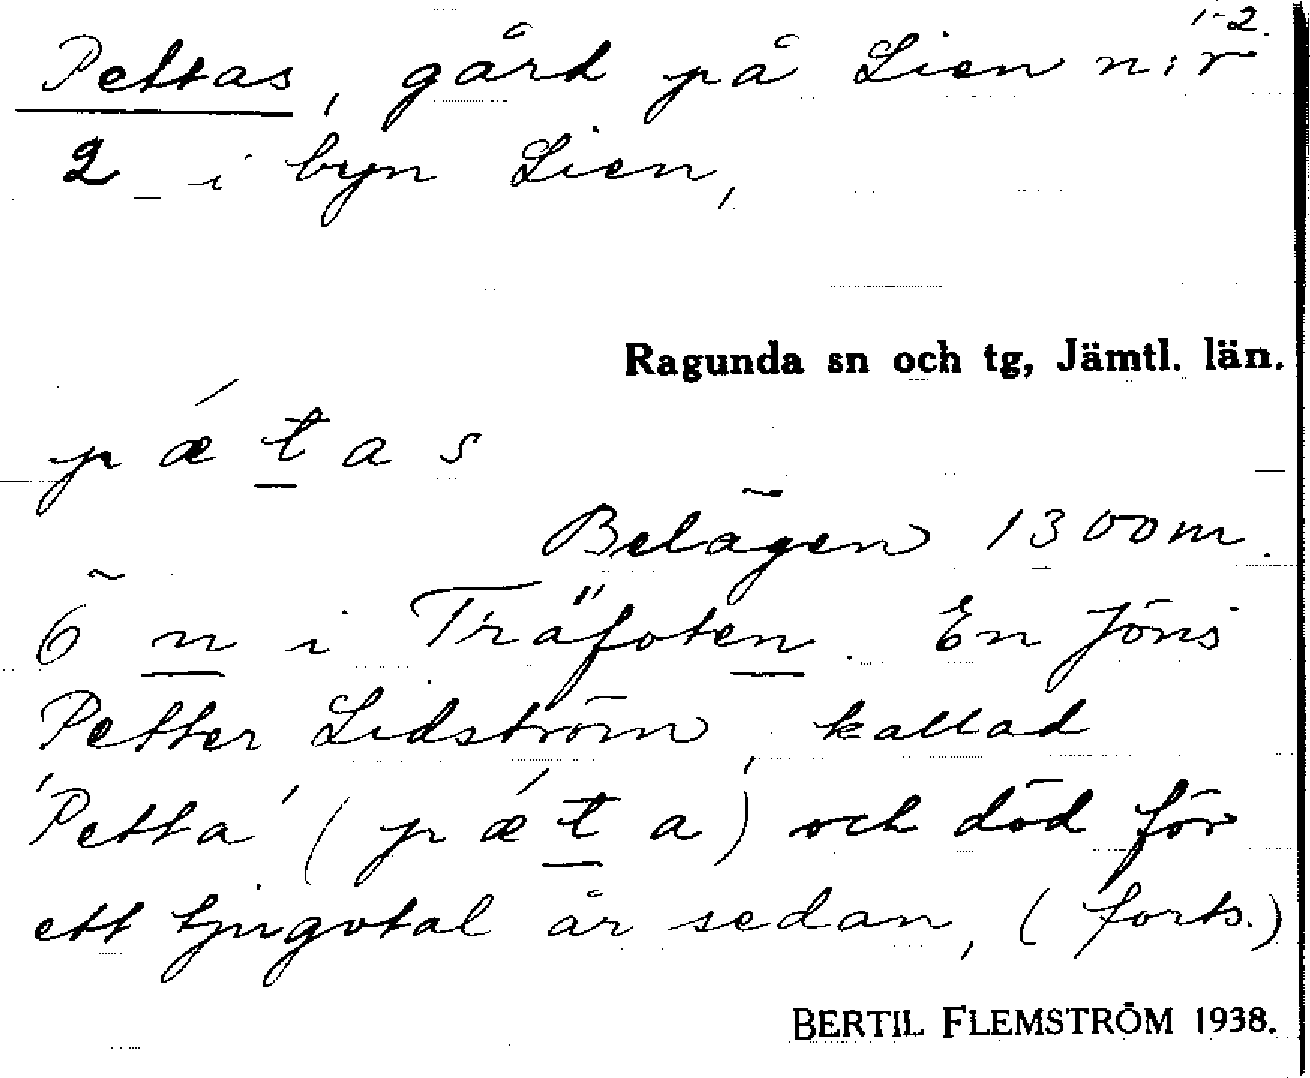 1-2.
Pettas, gård på Lien n:r
2 i byn Lien,
Ragunda sn och tg, Jämtl. län.
pǽtas
Belägen 1300 m.
ö n i Träfoten. En Jöns
Petter Lidström, kallad
'Petta' (pǽta) och död för
ett tjugotal år sedan, (forts.)
BERTIL FLEMSTRÖM 1938.